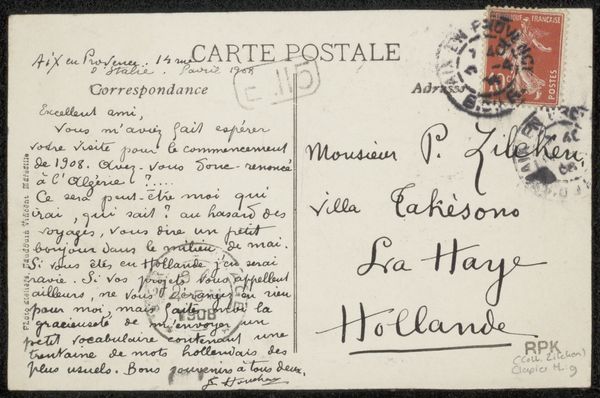 CARTE POSTALE
Aix en Provence, 14 rue
d'Italie. 1908
Correspondance
Adresse
RÉPUBLIQUE FRANÇAISE
POSTES
Excellent ami,
Vous m'aviez fait espérer
votre visite pour le commencement
de 1908. Avez-vous donc renoncé
à l'Algérie ?....
Ce sera peut-être moi qui
irai, qui sait ? au hasard des
voyages, vous dire un petit
bonjour dans le milieu de mai.
Si vous êtes en Hollande j'en serai
ravie. Si vos projets vous appellent
ailleurs, ne vous dérangez en rien
pour moi, mais faites-moi la
gracieuseté de m'envoyer un
petit vocabulaire contenant une
trentaine de mots hollandais des
plus usuels. Bons souvenirs à tous deux.
Monsieur P. Zilcken
Villa Takésono
La Haye
Hollande
AIX EN PROVENCE
1908
RPK
(Coll. Zilcken)